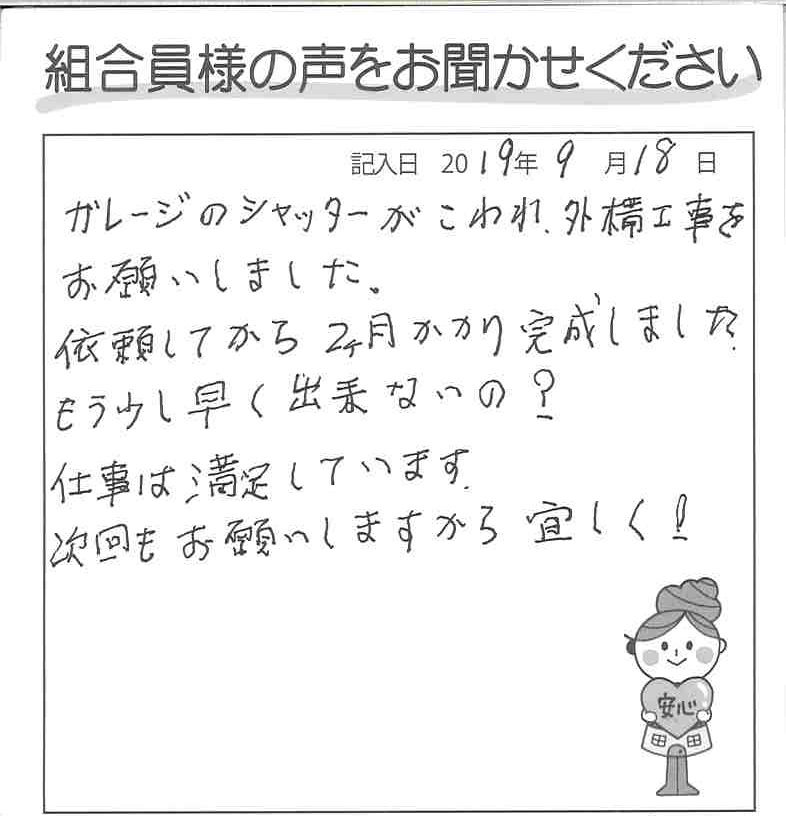 組合員様の声をお聞かせください
記入日 2019年 9月18日
ガレージのシャッターがこわれ、外構工事を
お願いしました。
依頼してから2ヶ月かかり完成しました
もう少し早く出来ないの?
仕事は満足しています。
次回もお願いしますから宜しく!
安心